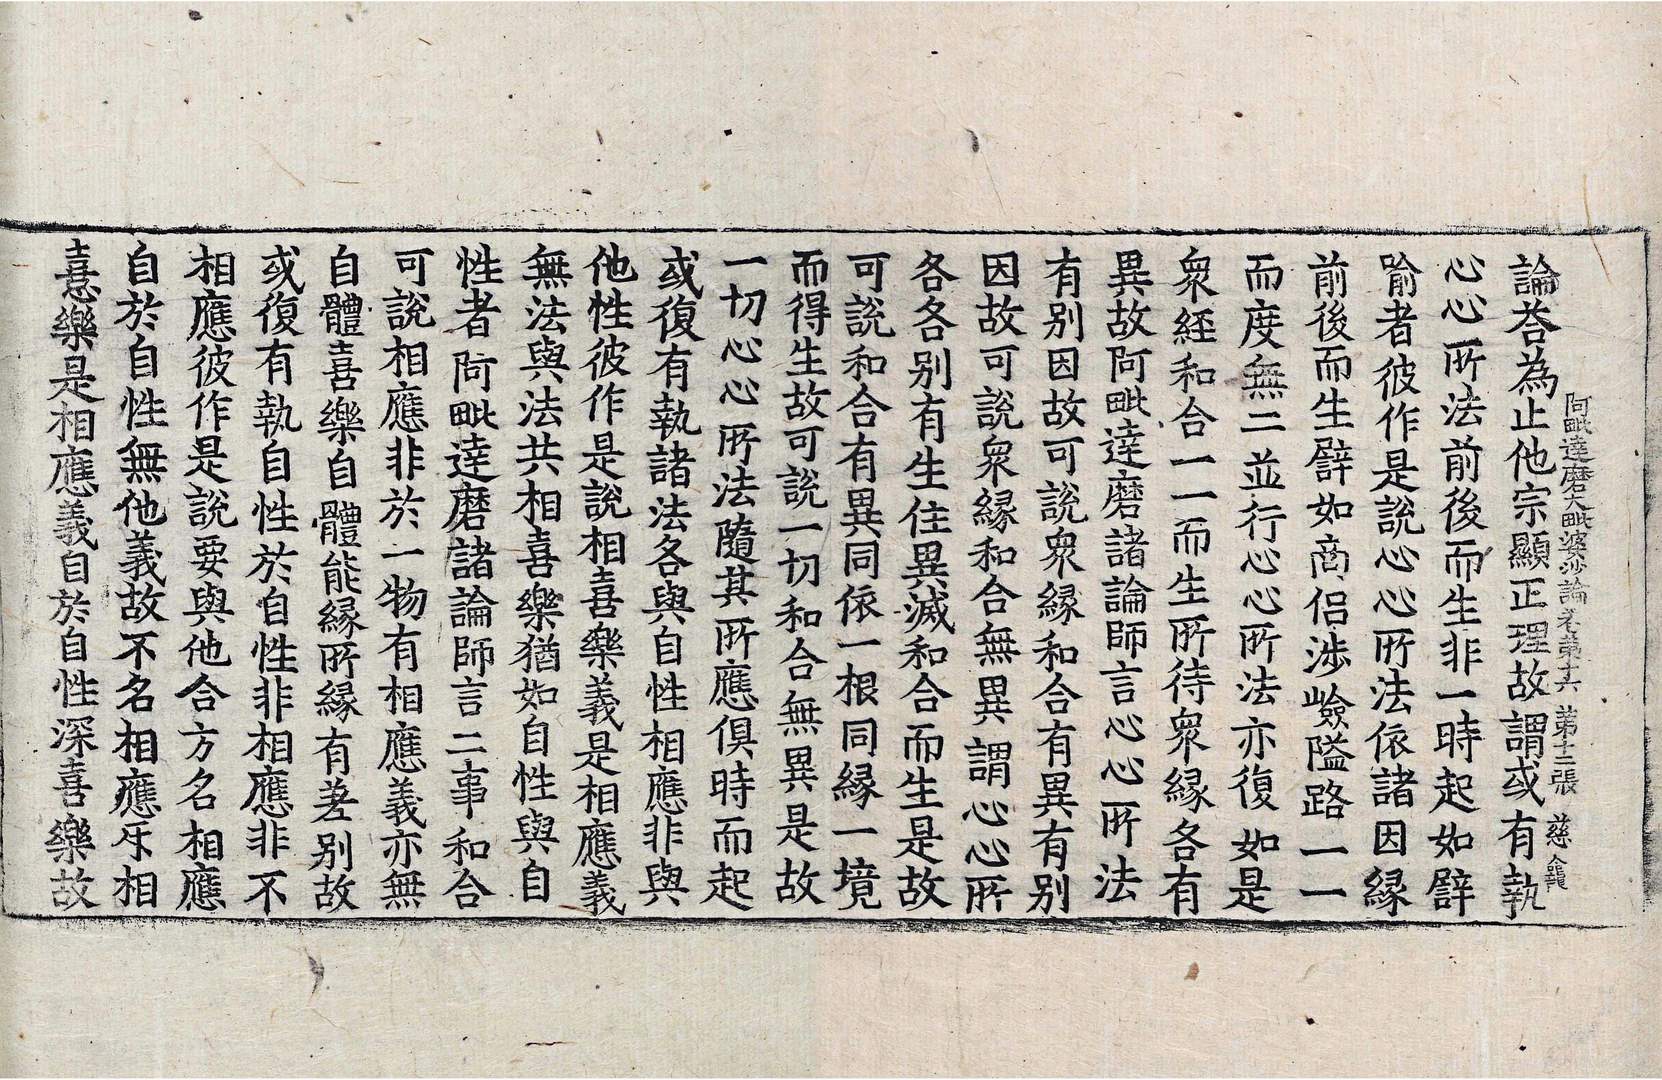 阿毗達磨大毗婆沙論卷第十六 第十二張 慈龕
論荅為止他宗顯正理故謂或有執
心心所法前後而生非一時起如譬
喻者彼作是說心心所法依諸因緣
前後而生譬如商侶涉嶮隘路一一
而度無二並行心心所法亦復如是
衆緣和合一一而生所待衆緣各有
異故阿毗達磨諸論師言心心所法
有別因故可說衆緣和合有異有別
因故可說衆緣和合無異謂心心所
各各別有生住異滅和合而生是故
可說和合有異同依一根同緣一境
而得生故可說一切和合無異是故
一切心心所法隨其所應俱時而起
或復有執諸法各與自性相應非與
他性彼作是說相喜樂義是相應義
無法與法共相喜樂猶如自性與自
性者阿毗達磨諸論師言二事和合
可說相應非於一物有相應義亦無
自體喜樂自體能緣所緣有差別故
或復有執自性於自性非相應非不
相應彼作是說要與他合方名相應
自於自性無他義故不名相應不相
憙樂是相應義自於自性深喜樂故